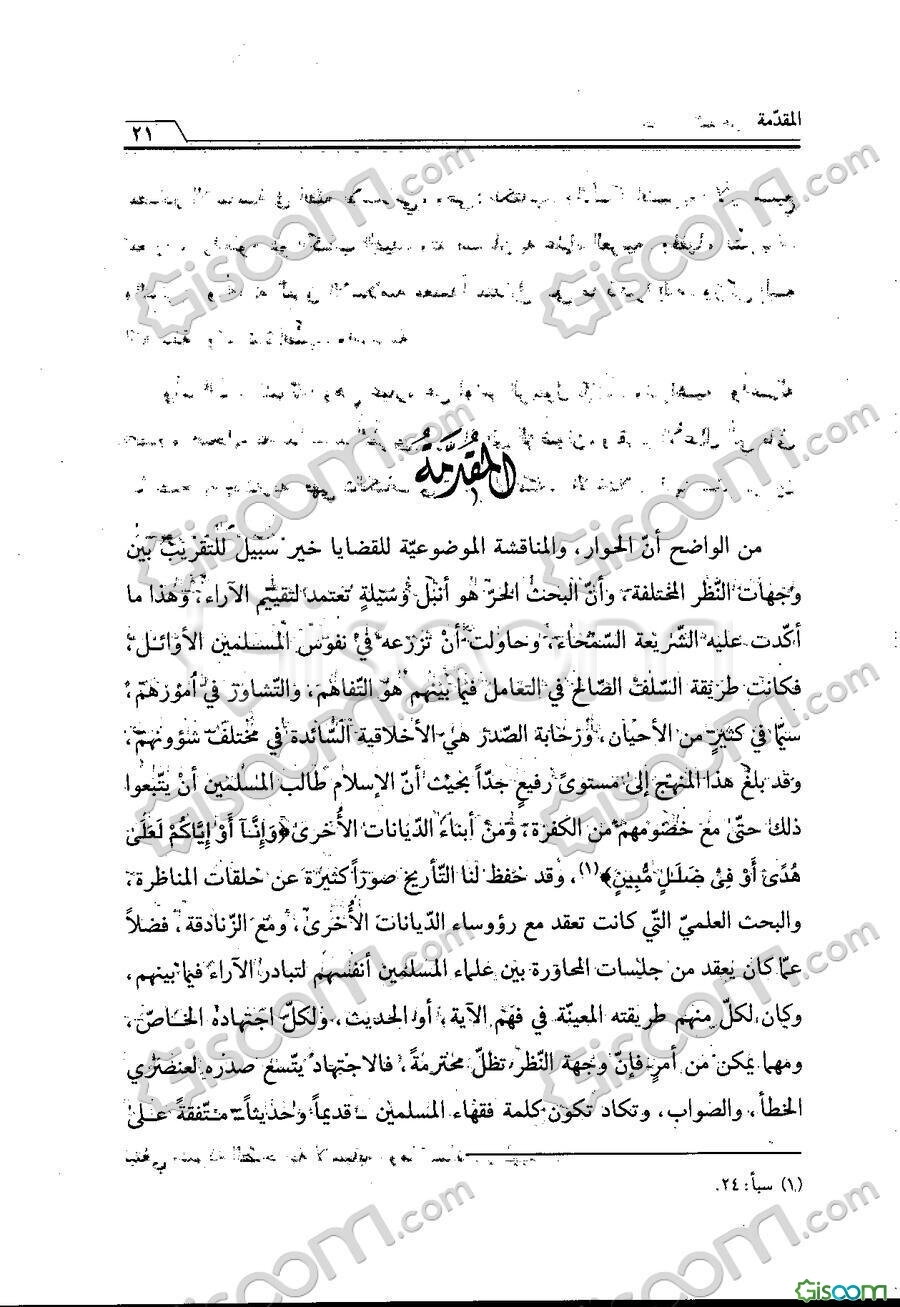 المقدّمة
٢١
المُقَدِّمَةُ
من الواضح أنّ الحوار، والمناقشة الموضوعيّة للقضايا خير سبيل للتقريب بين
وجهات النّظر المختلفة، وأنّ البحث الحرّ هو أنبل وسيلةٍ تعتمد لتقييم الآراء، وهذا ما
أكّدت عليه الشّريعة السّمحاء، وحاولت أنْ تزرعه في نفوس المسلمين الأوائل،
فكانت طريقة السّلف الصّالح في التعامل فيما بينهم هو التّفاهم، والتّشاور في أمورهم،
سيّما في كثيرٍ من الأحيان، ورحابة الصّدر هي الأخلاقية السّائدة في مختلف شؤونهم،
وقد بلغ هذا المنهج إلى مستوىً رفيعٍ جدّاً بحيث أنّ الإسلام طالب المسلمين أنْ يتّبعوا
ذلك حتّىٰ مع خصومهم من الكفرة، ومن أبناء الدّيانات الأُخرىٰ ﴿وَإِنَّآ أَوْ إِيَّاكُمْ لَعَلَىٰ
هُدًى أَوْ فِى ضَلَـٰلٍ مُّبِينٍ﴾(١)، وقد حفظ لنا التّأريخ صوراً كثيرة عن حلقات المناظرة،
والبحث العلميّ التّي كانت تعقد مع رؤوساء الدّيانات الأُخرىٰ، ومع الزّنادقة، فضلاً
عمّا كان يعقد من جلسات المحاورة بين علماء المسلمين أنفسهم لتبادر الآراء فيما بينهم،
وكان لكلّ منهم طريقته المعيّنة في فهم الآية، أو الحديث، ولكلّ اجتهاده الخاصّ،
ومهما يمكن من أمرٍ فإنّ وجهة النّظر تظلّ محترمةً، فالاجتهاد يتّسع صدره لعنصري
الخطأ، والصّواب، وتكاد تكون كلمة فقهاء المسلمين - قديماً وحديثاً - متّفقةً على
(١) سبأ: ٢٤.
Gisoom.com
Gisoom